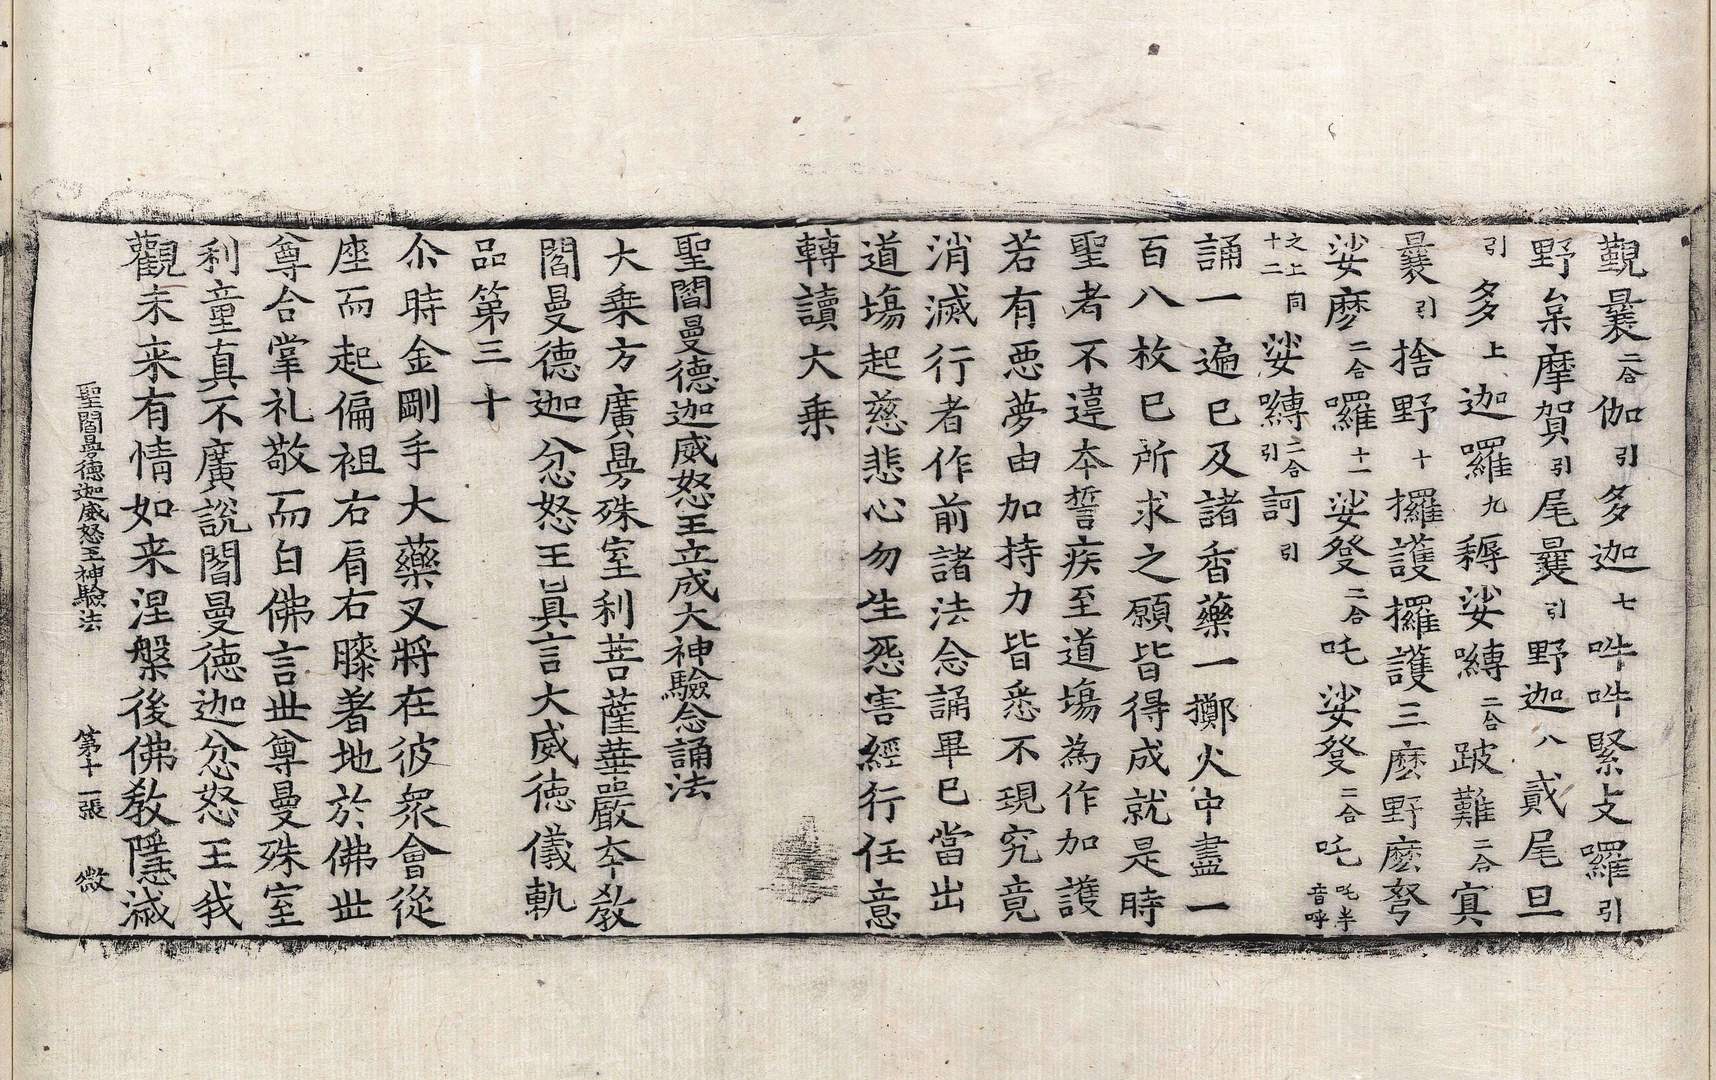 覲曩二合伽引多迦七吽吽緊攴羅引
野枲摩賀引尾曩引野迦八貳尾旦
引多上迦囉九耨娑嚩二合跛難二合寘
曩引捨野十攞護攞護三麽野麽弩
娑麽二合囉十一娑癹二合吒娑癹二合吒吒半音呼
之上同十二娑嚩二合引訶引
誦一遍已及諸香藥一擲火中盡一
百八枚已所求之願皆得成就是時
聖者不違本誓疾至道場為作加護
若有惡夢由加持力皆悉不現究竟
消滅行者作前諸法念誦畢已當出
道場起慈悲心勿生惡害經行任意
轉讀大乗
聖閻曼德迦威怒王立成大神驗念誦法
大乗方廣曼殊室利菩薩華嚴本教
閻曼德迦忿怒王真言大威德儀軌
品第三十
尒時金剛手大藥叉將在彼衆會從
座而起偏袒右肩右膝著地於佛世
尊合掌礼敬而白佛言世尊曼殊室
利童真不廣説閻曼德迦忿怒王我
觀未来有情如来涅槃後佛教隱滅
聖閻曼德迦威怒王神驗法 第十一張 微